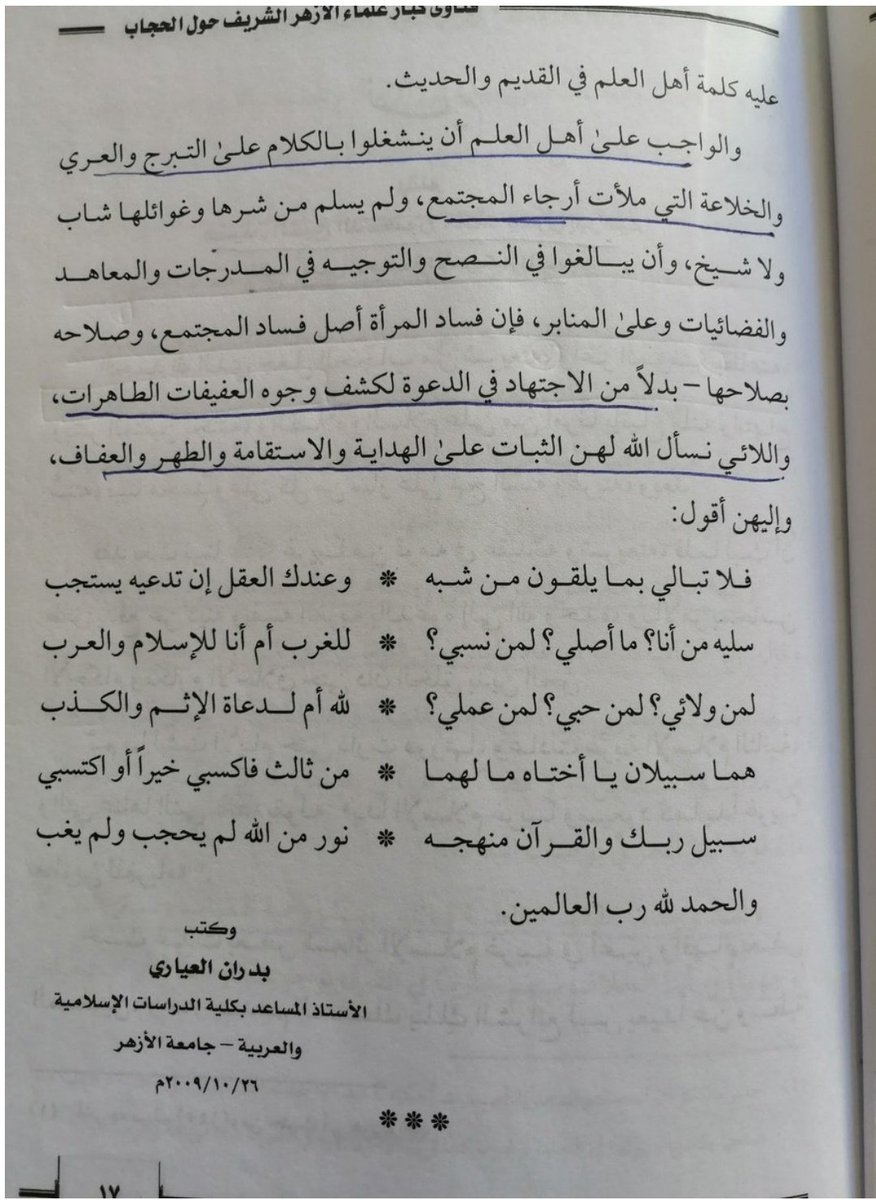 فتاوى كبار علماء الأزهر الشريف حول الحجاب
عليه كلمة أهل العلم في القديم والحديث.
والواجب علىٰ أهل العلم أن ينشغلوا بالكلام علىٰ التبرج والعري
والخلاعة التي ملأت أرجاء المجتمع، ولم يسلم من شرها وغوائلها شاب
ولا شيخ، وأن يبالغوا في النصح والتوجيه في المدرجات والمعاهد
والفضائيات وعلىٰ المنابر، فإن فساد المرأة أصل فساد المجتمع، وصلاحه
بصلاحها – بدلاً من الاجتهاد في الدعوة لكشف وجوه العفيفات الطاهرات،
واللائي نسأل الله لهن الثبات علىٰ الهداية والاستقامة والطهر والعفاف،
وإليهن أقول:
فلا تبالي بما يلقون من شبه * وعندك العقل إن تدعيه يستجب
سليه من أنا؟ ما أصلي؟ لمن نسبي؟ * للغرب أم أنا للإسلام والعرب
لمن ولائي؟ لمن حبي؟ لمن عملي؟ * لله أم لدعاة الإثم والكذب
هما سبيلان يا أختاه ما لهما * من ثالث فاكسبي خيراً أو اكتسبي
سبيل ربك والقرآن منهجه * نور من الله لم يحجب ولم يغب
والحمد لله رب العالمين.
وكتب
بدران العياري
الأستاذ المساعد بكلية الدراسات الإسلامية
والعربية – جامعة الأزهر
٢٠٠٩/١٠/٢٦م
* * *
١٧